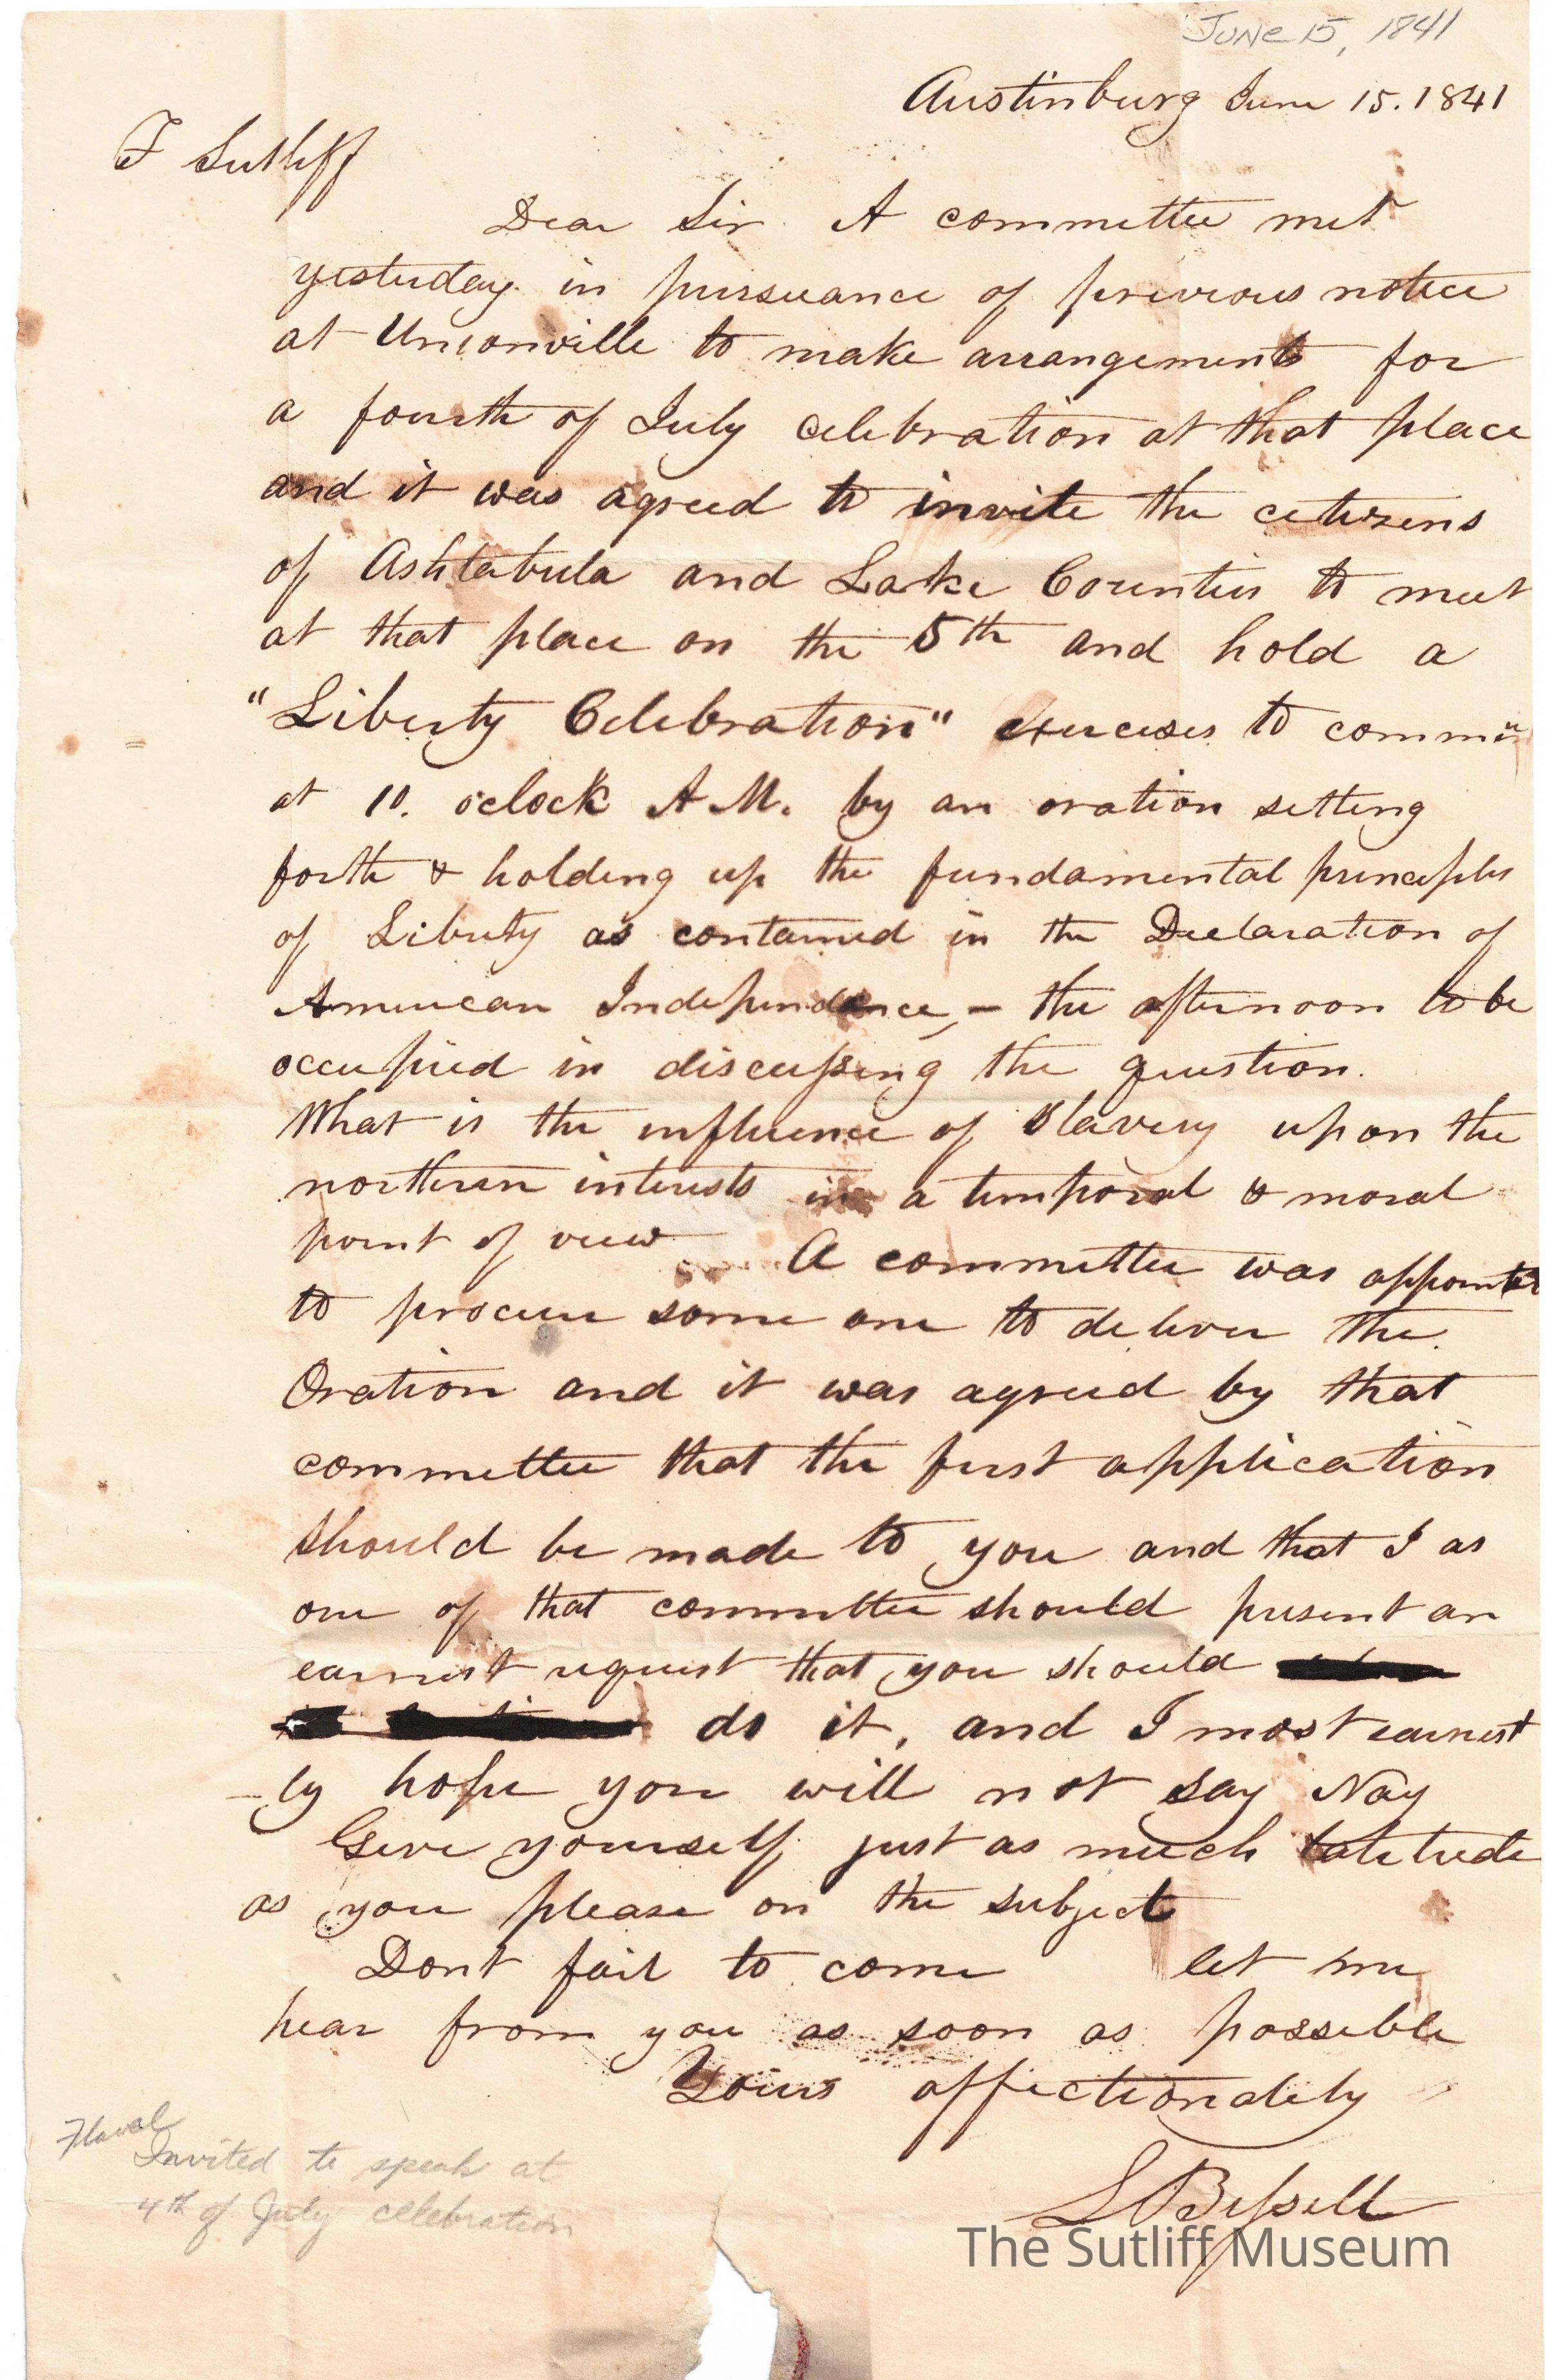 June 15, 1841
Austinburg June 15. 1841
F Sutliff
Dear Sir. A committee met
yesterday in pursuance of previous notice
at Unionville to make arrangements for
a fourth of July celebration at that place
and it was agreed to invite the citizens
of Ashtabula and Lake Counties to meet
at that place on the 5th and hold a
"Liberty Celebration" exercises to
at 10. oclock A M. by an oration setting
forth & holding up the fundamental principles
of Liberty as contained in the Declaration of
American Independance, - the afternoon to be
occupied in discussing the question.
What is the influence of Slavery upon the
northern interests in a temporal & moral
point of view A committee was appointed
to procure some one to deliver the
Oration and it was agreed by that
committee that the first application
should be made to you and that I as
one of that committee should present an
earnest request that you should
do it, and I most earnest
-ly hope you will not say Nay
Give yourself just as much latitude
as you please on the subject
Dont fail to come let me
hear from you as soon as possible
Yours affectionately
L Bissell
Flavel
Invited to speak at
4th of July celebration
The Sutliff Museum